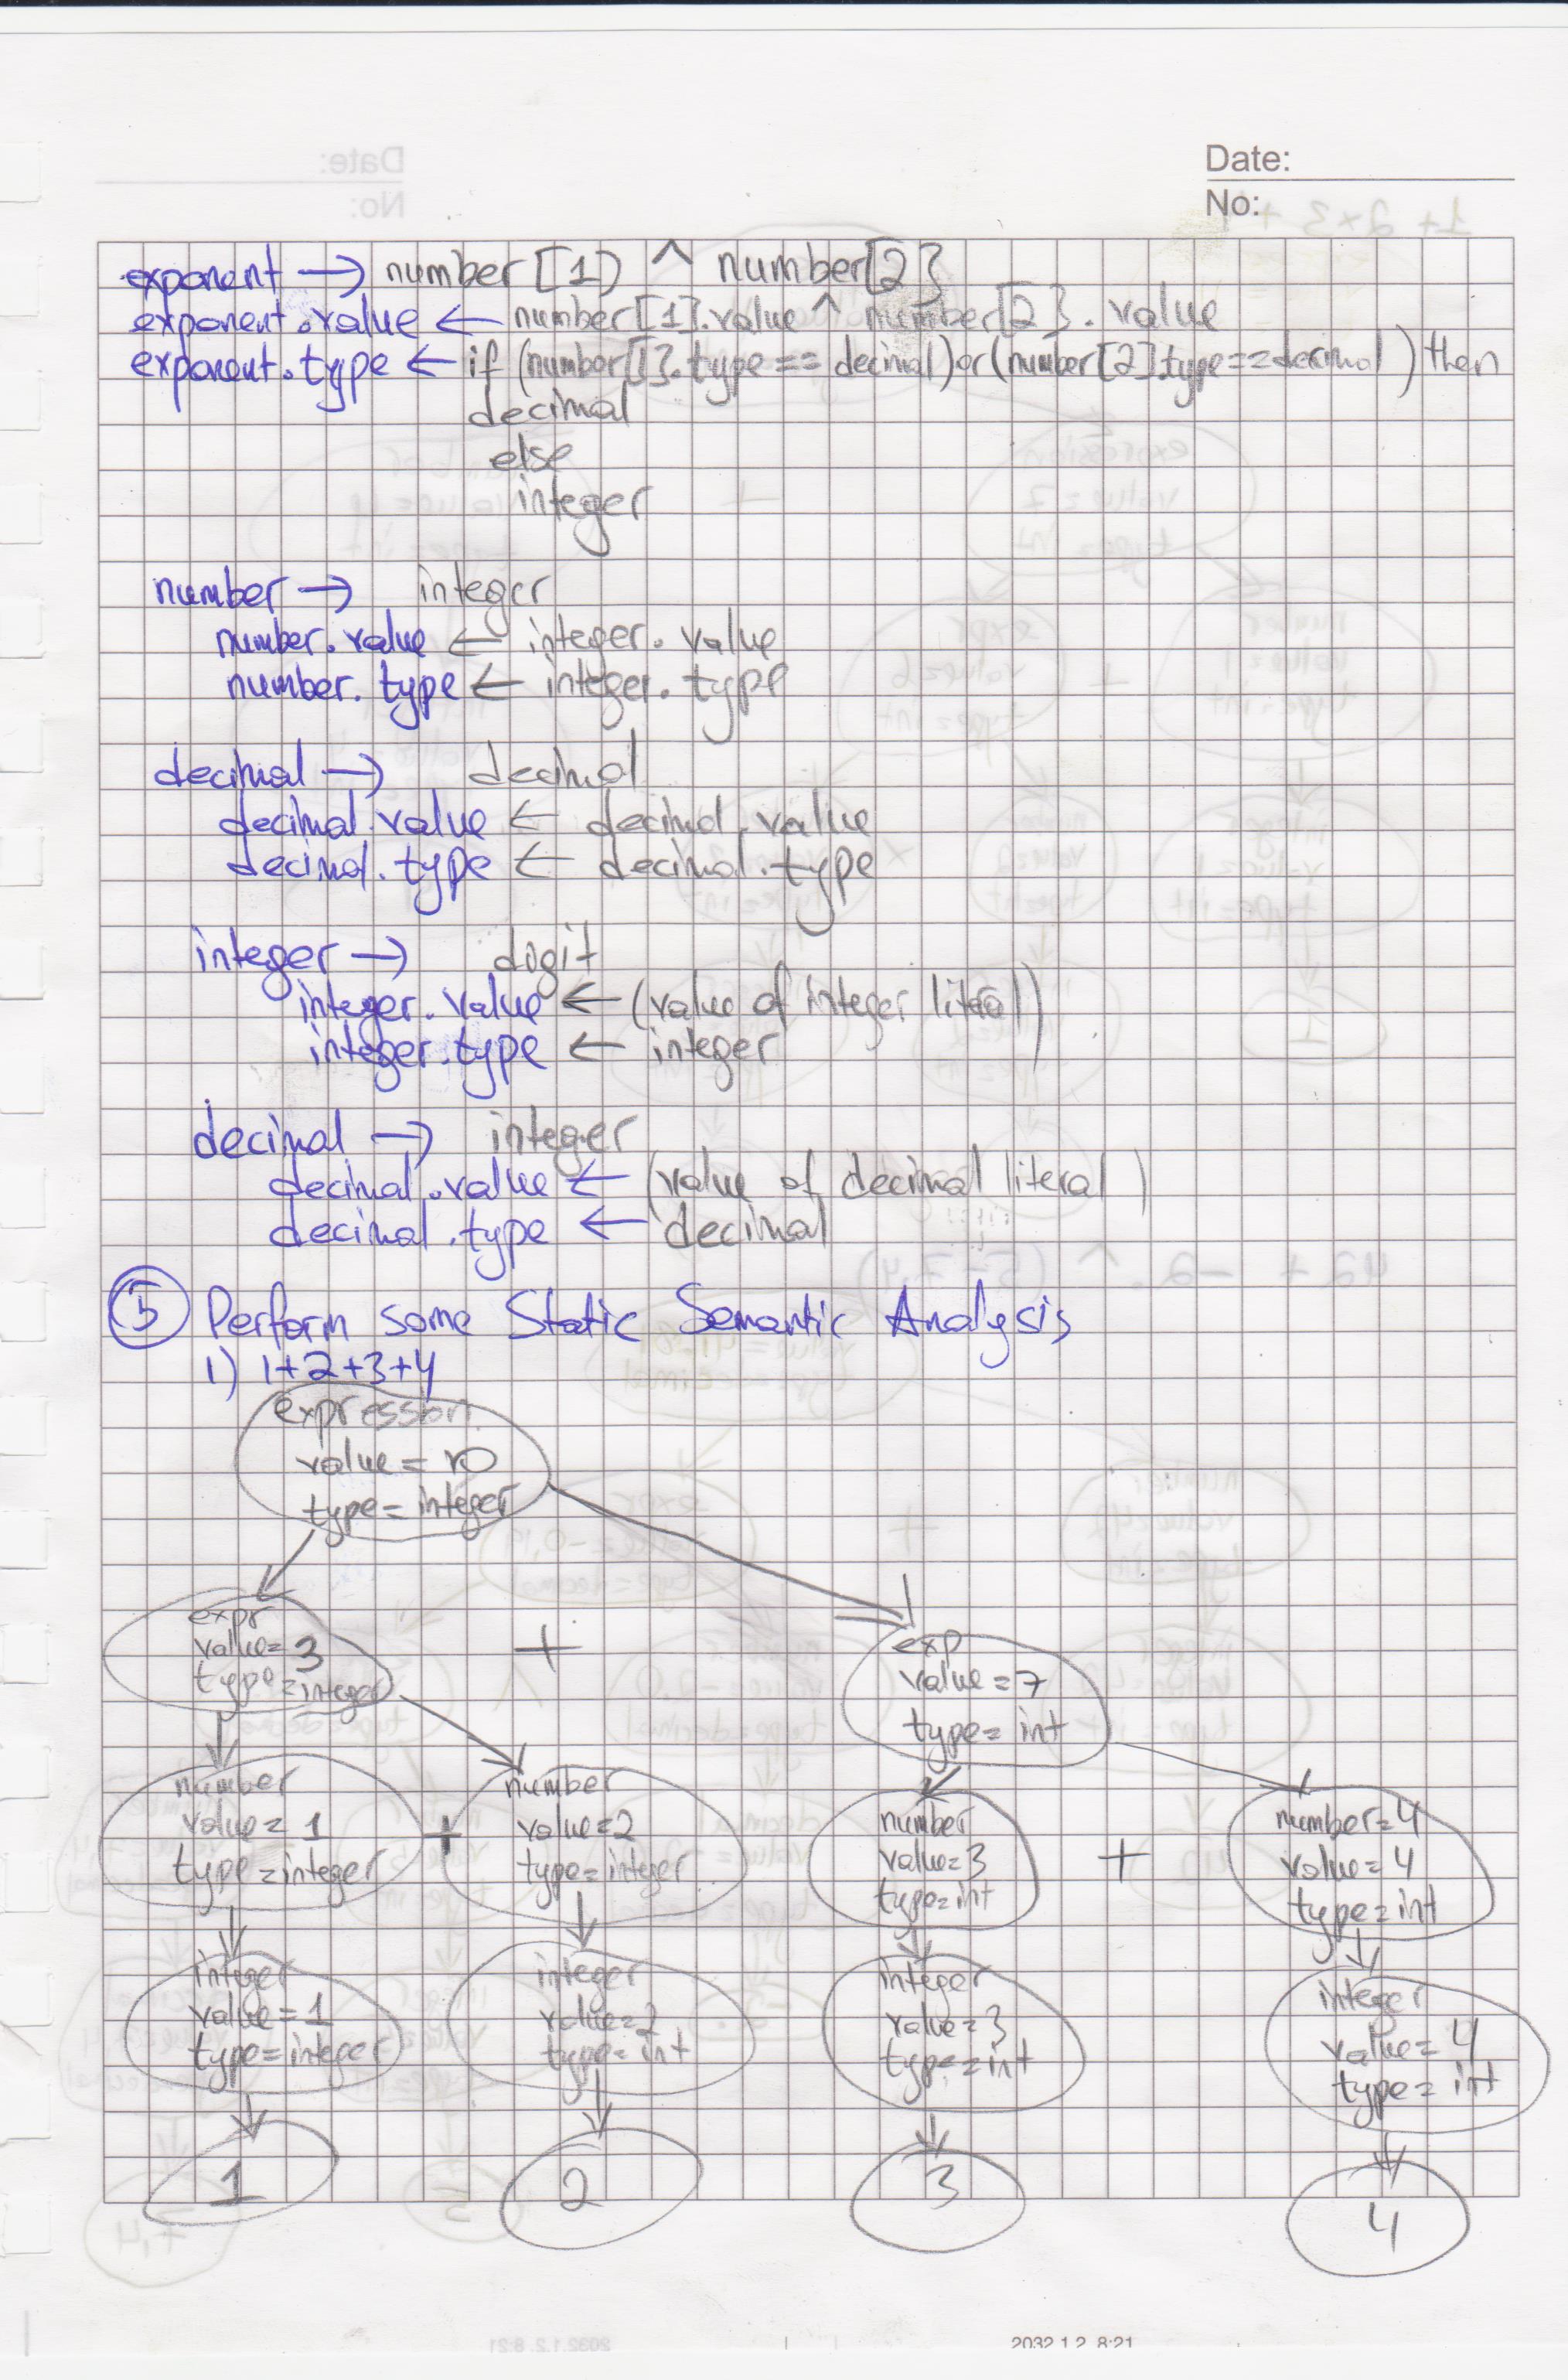 Date:
No:
exponent → number [1) ^ number[2}
exponent.value ← number[1].value ^ number[2}. value
exponent.type ← if (number[1}.type == decimal) or (number[2].type==decimal) then
decimal
else
integer
number → integer
number.value ← integer. value
number. type ← integer. type
decimal → decimal
decimal.value ← decimal.value
decimal. type ← decimal.type
integer → digit
integer. value ← (value of integer literal)
integer.type ← integer
decimal → integer
decimal.value ← (value of decimal literal )
decimal.type ← decimal
5 Perform some Static Semantic Analysis
1) 1+2+3+4
expression
value = 10
type = integer
expr
value=3
type=integer
+
exp
value = 7
type= int
number
value= 1
type=integer
+
number
value=2
type=integer
number
value=3
type=int
+
number=4
value=4
type=int
integer
value=1
type=integer
integer
value=2
type=int
integer
value=3
type=int
integer
value=4
type= int
1
2
3
4
2032.1.2 8:21